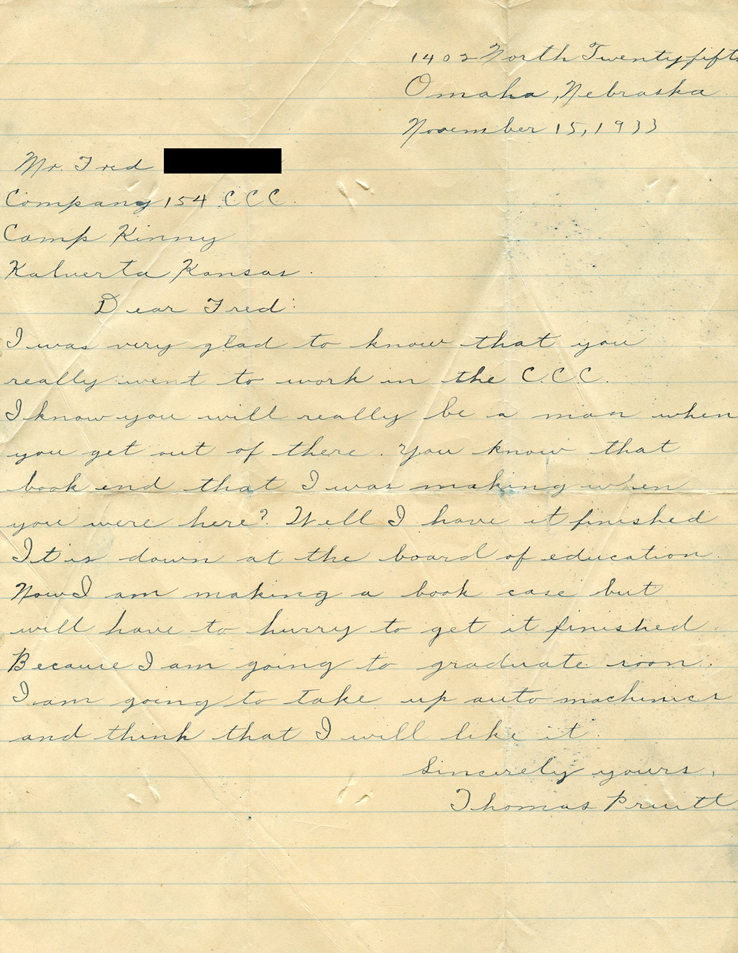 1402 North Twentyfifth
Omaha, Nebraska
November 15, 1933
Mr. Fred
Company 154 C C C.
Camp Kinny
Kalverta Kansas.
Dear Fred:
I was very glad to know that you
really went to work in the C.C.C.
I know you will really be a man when
you get out of there. You know that
book end that I was making when
you were here? Well I have it finished
It is down at the board of education.
Now I am making a book case but
will have to hurry to get it finished.
Because I am going to graduate soon.
I am going to take up auto machines
and think that I will like it.
Sincerely yours,
Thomas Pruitt